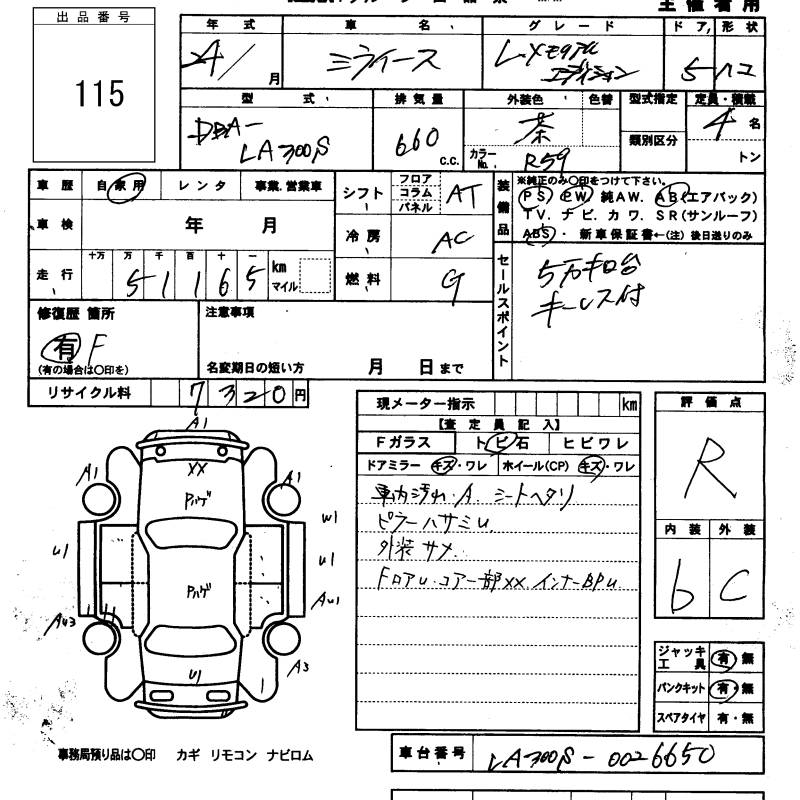 主催者用
出品番号
115
年式 車名 グレード ドア 形状
24/月 ミライース L メモリアルエディション 5 ハコ
型式 排気量 外装色 色替 型式指定 定員・積載
DBA-LA300S 660 c.c. 茶 カラーNo. R59 類別区分 4名 トン
車歴 自家用 レンタ 事業.営業車
シフト フロア コラム パネル AT
装備品 ※純正のみ○印をつけて下さい。
PS PW 純AW. AB(エアバック)
TV. ナビ. カワ. SR(サンルーフ)
ABS・新車保証書←(注)後日送りのみ
車検 年 月
冷房 AC
走行 十万 万 千 百 十 一
51165 km マイル
燃料 G
セールスポイント
5万キロ台
キーレス付
修復歴 箇所
有 F
(有の場合は○印を)
注意事項
名変期日の短い方 月 日まで
リサイクル料 7320円
現メーター指示 km
【査定員記入】
Fガラス トビ石 ヒビワレ
ドアミラー キズ・ワレ ホイール(CP) キズ・ワレ
車内汚れ.A. シートヘタリ
ピラーハサミU.
外装サメ.
FロアU.コアー部XX.インナーBPU.
評価点
R
内装 外装
b C
ジャッキ工具 有・無
パンクキット 有・無
スペアタイヤ 有・無
A1
XX
A1
A1
Pハゲ
W1
U1
U1
Pハゲ
AU1
AU3
A3
U1
事務局預り品は○印 カギ リモコン ナビロム
車台番号 LA300S-0026650